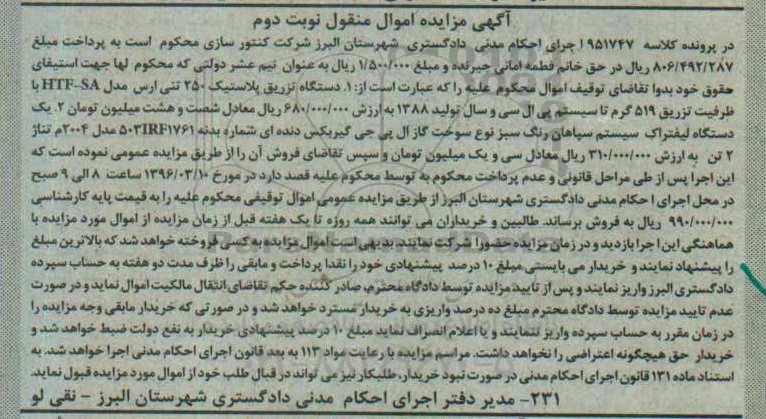 آگهی مزایده اموال منقول نوبت دوم
در پرونده کلاسه ۹۵۱۷۴۷ ا جرای احکام مدنی دادگستری شهرستان البرز شرکت کنتور سازی محکوم است به پرداخت مبلغ
۸۰۶/۴۹۲/۲۸۷ ریال در حق خانم فطمه امانی جیرنده و مبلغ ۱/۵۰۰/۰۰۰ ریال به عنوان نیم عشر دولتی که محکوم لها جهت استیفای
حقوق خود بدوا تقاضای توقیف اموال محکوم علیه را که عبارت است از: ۱. دستگاه تزریق پلاستیک ۲۵۰ تنی ارس مدل HTF-SA با
ظرفیت تزریق ۵۱۹ گرم تا سیستم پی ال سی و سال تولید ۱۳۸۸ به ارزش ۶۸۰/۰۰۰/۰۰۰ ریال معادل شصت و هشت میلیون تومان ۲. یک
دستگاه لیفتراک سیستم سپاهان رنگ سبز نوع سوخت گاز ال پی جی گیربکس دنده ای شماره بدنه ۵۰۳IRF۱۷۶۱ مدل ۲۰۰۴م تناژ
۲ تن به ارزش ۳۱۰/۰۰۰/۰۰۰ ریال معادل سی و یک میلیون تومان و سپس تقاضای فروش آن را از طریق مزایده عمومی نموده است که
این اجرا پس از طی مراحل قانونی و عدم پرداخت محکوم به توسط محکوم علیه قصد دارد در مورخ ۱۳۹۶/۰۳/۱۰ ساعت ۸ الی ۹ صبح
در محل اجرای ا حکام مدنی دادگستری شهرستان البرز از طریق مزایده عمومی اموال توقیفی محکوم علیه را به قیمت پایه کارشناسی
۹۹۰/۰۰۰/۰۰۰ ریال به فروش برساند. طالبین و خریداران می توانند همه روزه تا یک هفته قبل از زمان مزایده از اموال مورد مزایده با
هماهنگی این اجرا بازدید و در زمان مزایده حضورا شرکت نمایند. بدیهی است اموال مزایده به کسی فروخته خواهد شد که بالاترین مبلغ
را پیشنهاد نمایند و خریدار می بایستی مبلغ ۱۰ درصد پیشنهادی خود را نقدا پرداخت و مابقی را ظرف مدت دو هفته به حساب سپرده
دادگستری البرز واریز نمایند و پس از تایید مزایده توسط دادگاه محترم، صادر کننده حکم تقاضای انتقال مالکیت اموال نماید و در صورت
عدم تایید مزایده توسط دادگاه محترم مبلغ ده درصد واریزی به خریدار مسترد خواهد شد و در صورتی که خریدار مابقی وجه مزایده را
در زمان مقرر به حساب سپرده واریز ننمایند و یا اعلام انصراف نماید مبلغ ۱۰ درصد پیشنهادی خریدار به نفع دولت ضبط خواهد شد و
خریدار حق هیچگونه اعتراضی را نخواهد داشت. مراسم مزایده با رعایت مواد ۱۱۳ به بعد قانون اجرای احکام مدنی اجرا خواهد شد. به
استناد ماده ۱۳۱ قانون اجرای احکام مدنی در صورت نبود خریدار، طلبکار نیز می تواند در قبال طلب خود از اموال مورد مزایده قبول نماید.
۲۳۱- مدیر دفتر اجرای احکام مدنی دادگستری شهرستان البرز - نقی لو